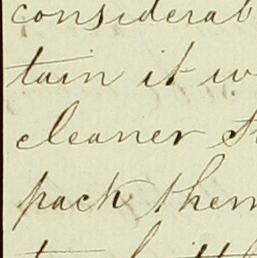 considerab
tain it w
cleaner
pack them